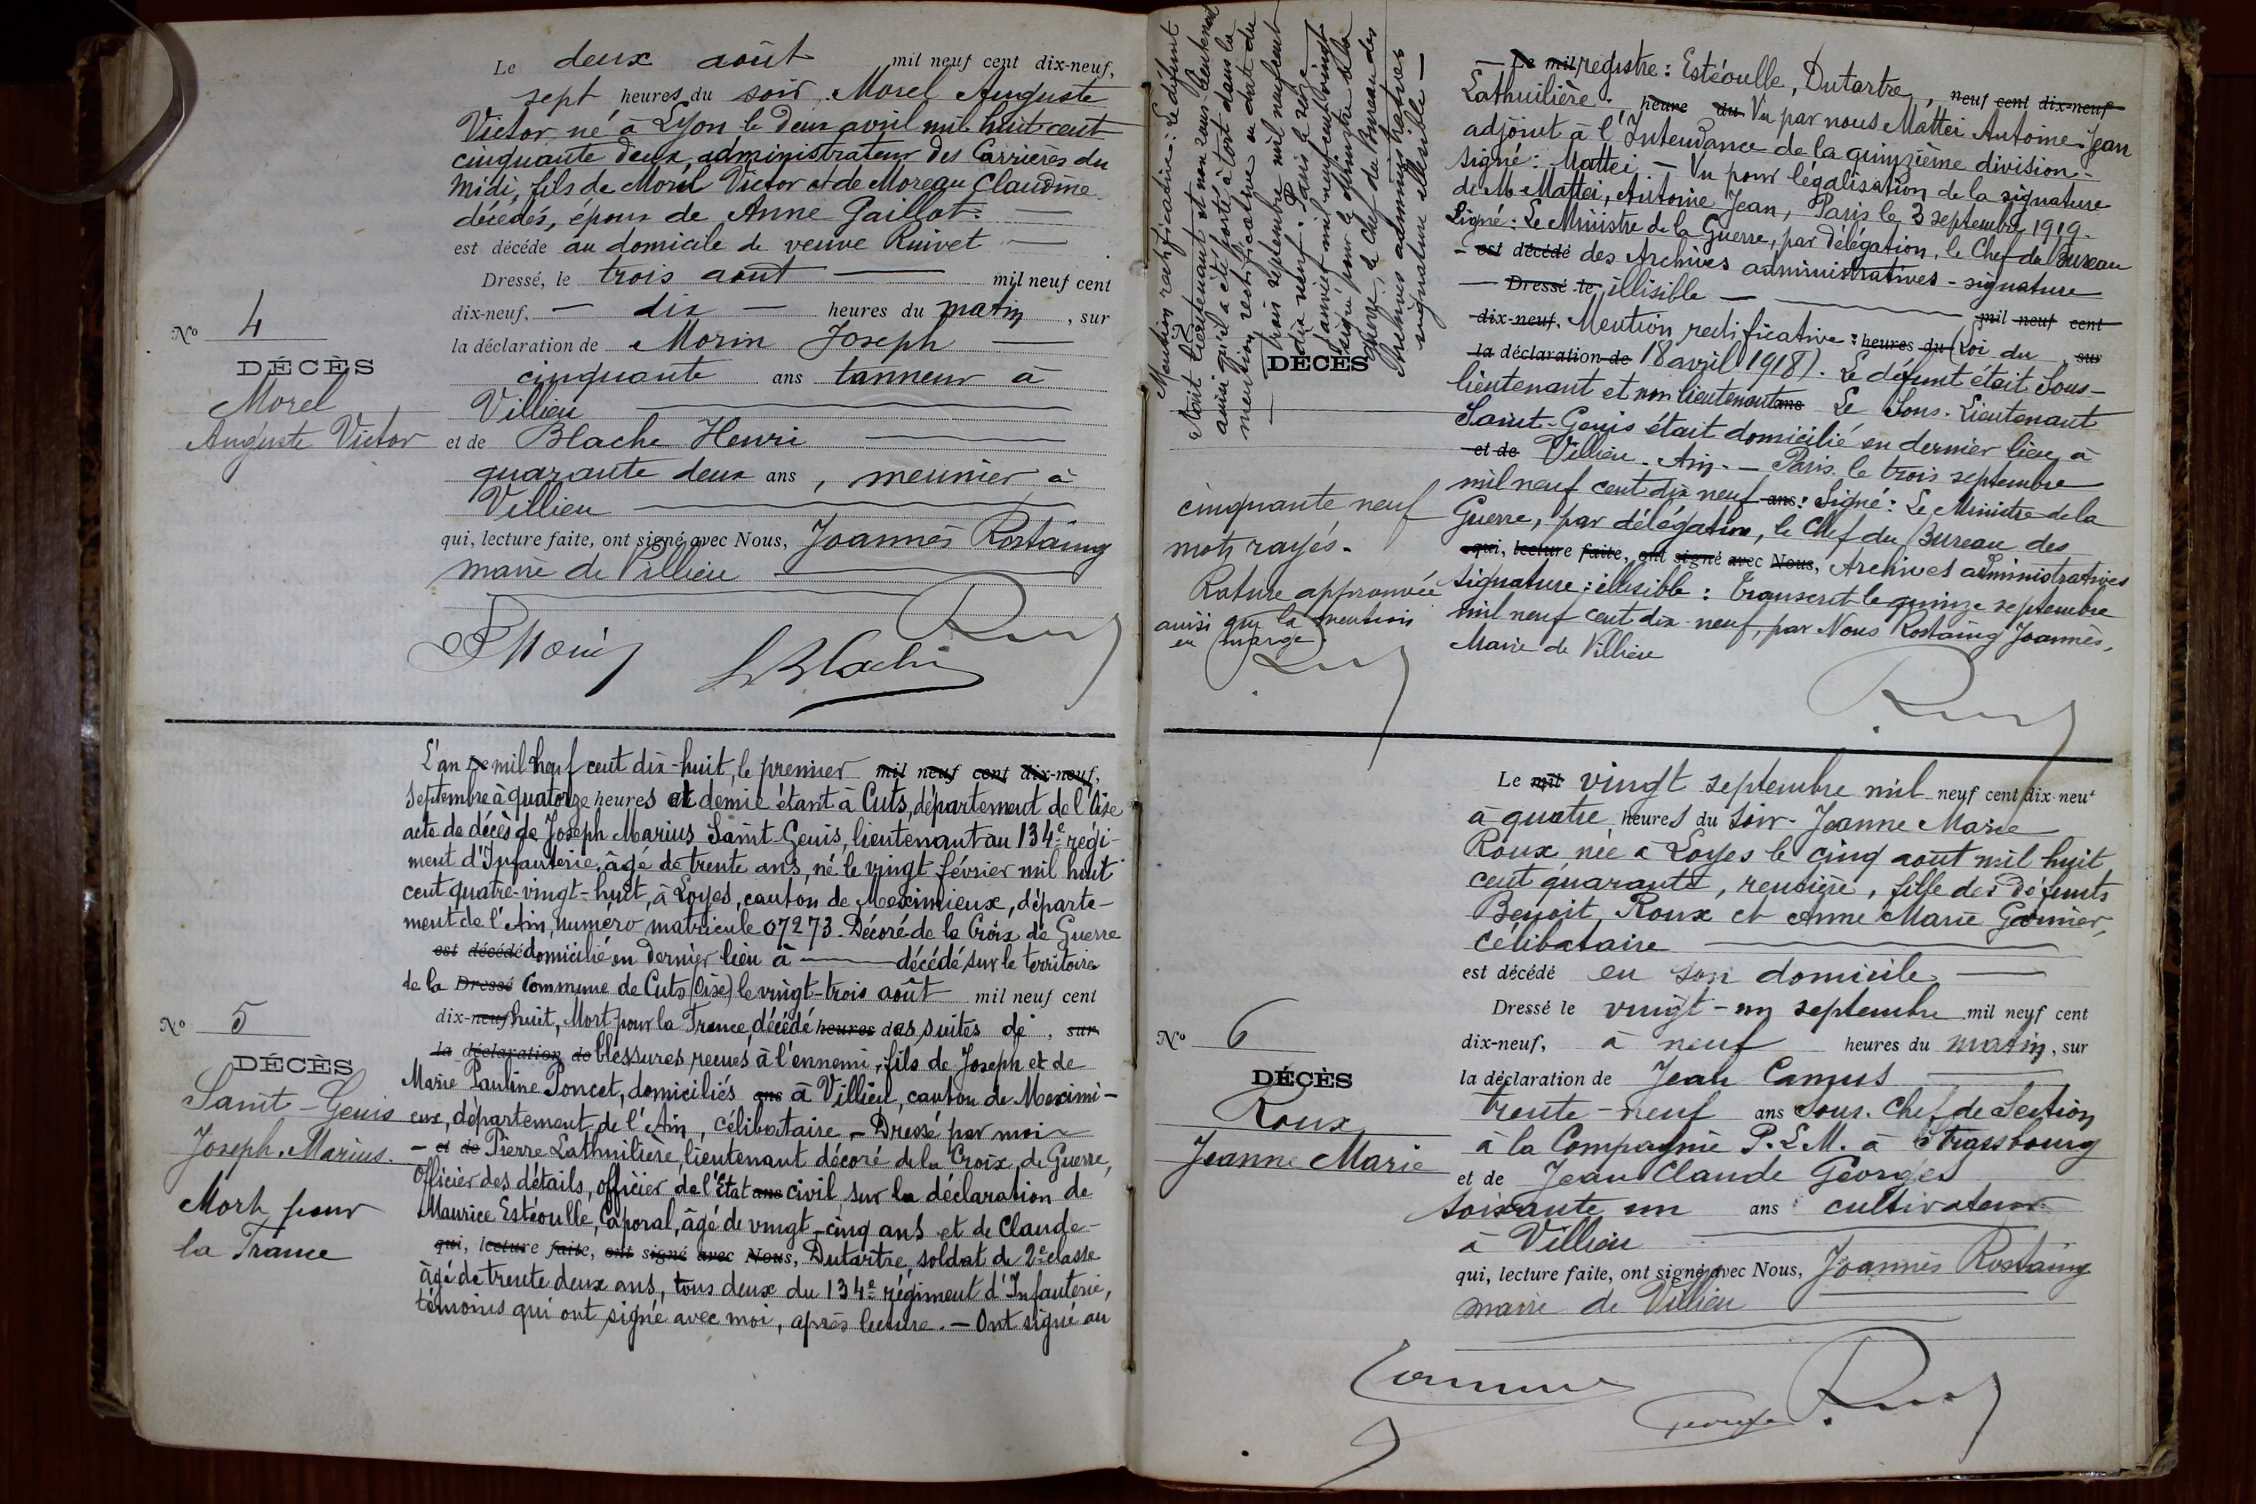 Le deux août mil neuf cent dix-neuf,
sept heures du soir, Morel Auguste
Victor né à Lyon le deux avril mil huit cent
cinquante deux, administrateur des Carrières du
Midi, fils de Morel Victor et de Moreau Claudine
décédés, époux de Anne Gaillot. —
est décédé au domicile de veuve Ruivet —
Dressé, le trois août — mil neuf cent
dix-neuf, — dix — heures du matin, sur
la déclaration de Morin Joseph —
cinquante ans tanneur à
Villieu
et de Blache Henri
quarante deux ans, meunier à
Villieu
qui, lecture faite, ont signé avec Nous, Joannès Rostaing
maire de Villieu
N° 4
DÉCÈS
Morel
Auguste Victor
L'an Le mil neuf cent dix-huit, le premier mil neuf cent dix-neuf,
septembre à quatorze heures et demie étant à Cuts, département de l'Oise
acte de décès de Joseph Marius Saint-Genis, lieutenant au 134e régi-
ment d'Infanterie, âgé de trente ans, né le vingt février mil huit
cent quatre-vingt-huit, à Loyes, canton de Meximieux, départe-
ment de l'Ain, numéro matricule 07273. Décoré de la Croix de Guerre
est décédé domicilié en dernier lieu à — décédé sur le territoire
de la Dressé Commune de Cuts (Oise) le vingt-trois août mil neuf cent
dix-neuf huit, Mort pour la France, décédé heures des suites de, sur
la déclaration de blessures reçues à l'ennemi, fils de Joseph et de
Marie Pauline Poncet, domiciliés ans à Villieu, canton de Meximi-
eux, département de l'Ain, célibataire. — Dressé par moi
— et de Pierre Lathuilière, lieutenant décoré de la Croix de Guerre,
Officier des détails, officier de l'État ans civil, sur la déclaration de
Maurice Estéoulle, Caporal, âgé de vingt-cinq ans et de Claude-
qui, lecture faite, ont signé avec Nous, Dutartre, soldat de 2e classe
âgé de trente deux ans, tous deux du 134e régiment d'Infanterie,
témoins qui ont signé avec moi, après lecture. — Ont signé au
N° 5
DÉCÈS
Saint-Genis
Joseph. Marius.
Mort pour
la France
— Le mil registre : Estéoulle, Dutartre, neuf cent dix-neuf
Lathuilière. heure du Vu par nous Mattei Antoine-Jean
adjoint à l'Intendance de la quinzième division.-
Signé : Mattei. — Vu pour légalisation de la signature
de M. Mattei, Antoine Jean, Paris le 3 septembre 1919.
Signé : Le Ministre de la Guerre, par délégation, le Chef du Bureau
- est décédé des Archives administratives - signature
— Dressé le illisible — mil neuf cent
dix-neuf. Mention rectificative : heures du (Loi du, sur
la déclaration de 18 avril 1918). Le défunt était Sous-
lieutenant et non lieutenant ans Le Sous-Lieutenant
Saint-Genis était domicilié en dernier lieu à
et de Villieu. Ain. — Paris le trois septembre
mil neuf cent dix neuf ans : Signé : Le Ministre de la
Guerre, par délégation, le Chef du Bureau des
qui, lecture faite, ont signé avec Nous, Archives administratives
signature : illisible : Transcrit le quinze septembre
mil neuf cent dix-neuf, par Nous Rostaing Joannès,
Maire de Villieu
Mention rectificative : Le défunt
était Lieutenant et non sous Lieutenant
ainsi qu'il a été porté à tort dans la
mention rectificative en date du
— trois septembre mil neuf cent
dix neuf. Paris le
Janvier mil neuf cent vingt
signé pour le Ministre de la
Guerre, le Chef du Bureau des
Archives administratives
signature illisible —
DÉCÈS
cinquante neuf
mots rayés.
Rature approuvée
ainsi que la mention
en marge
Le mil vingt septembre mil neuf cent dix-neuf
à quatre heures du soir - Jeanne Marie
Roux née à Loyes le cinq août mil huit
cent quarante, rentière, fille des défunts
Benoit Roux et Anne Marie Garnier,
célibataire
est décédé en son domicile —
Dressé le vingt-un septembre mil neuf cent
dix-neuf, à neuf heures du matin, sur
la déclaration de Jean Camus
trente-neuf ans Sous-Chef de Section
à la Compagnie P.L.M. à Strasbourg
et de Jean Claude Georges
soixante un ans cultivateur
à Villieu
qui, lecture faite, ont signé avec Nous, Joannès Rostaing
maire de Villieu
N° 6
DÉCÈS
Roux
Jeanne Marie